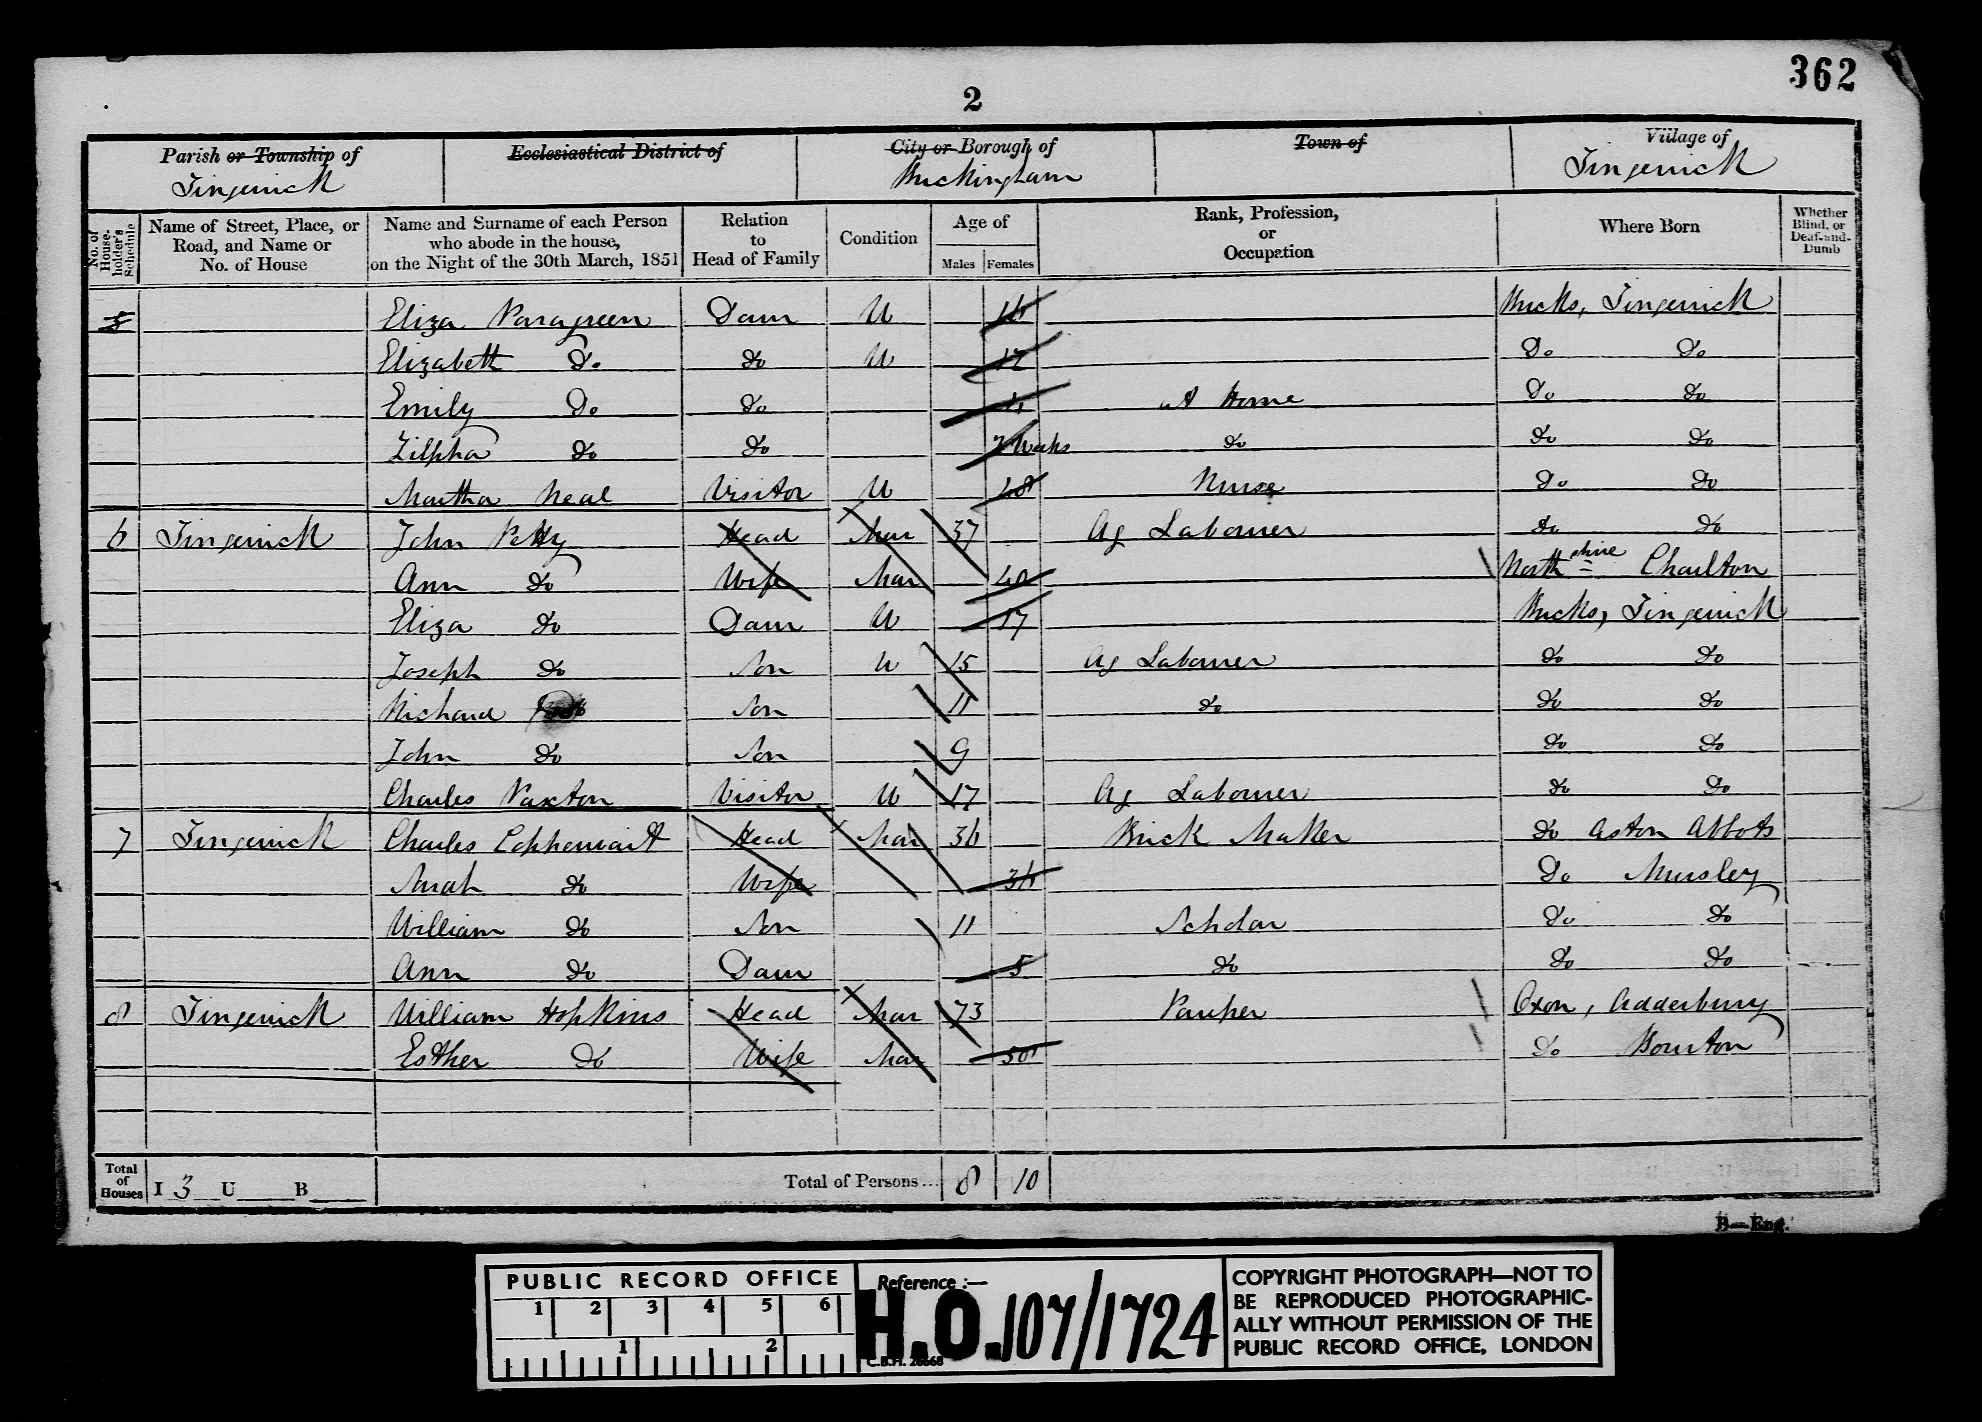 362
2
Parish or Township of
Tingewick
Ecclesiastical District of
City or Borough of
Buckingham
Town of
Village of
Tingewick
No. of House-holder's Schedule
Name of Street, Place, or Road, and Name or No. of House
Name and Surname of each Person who abode in the house, on the Night of the 30th March, 1851
Relation to Head of Family
Condition
Age of
Males Females
Rank, Profession, or Occupation
Where Born
Whether Blind, or Deaf-and-Dumb
5 Eliza Paragreen Daur U 16 Bucks, Tingewick
Elizabeth Do do U 12 Do Do
Emily Do do at Home Do do
Zilpha do do 7 Weeks do do do
Martha Neal Visitor U 48 Nurse Do do
6 Tingewick John Petty Head Mar 37 Ag Labourer do do
Ann do Wife Mar 40 Northshire Charlton
Eliza do Daur U 17 Bucks, Tingewick
Joseph do Son U 15 Ag Labourer do do
Richard Son 11 do do do
John do Son 9 do do
Charles Paxton Visitor U 17 Ag Labourer do do
7 Tingewick Charles Head Mar 36 Brick Maker do Aston Abbots
Sarah do Wife 36 Do Mursley
William do Son 11 Scholar Do do
Ann do Daur 5 do do do
8 Tingewick William Hopkins Head Mar 73 Pauper Oxon, Adderbury
Esther Do Wife Mar 50 do Bourton
Total of Houses I 3 U B Total of Persons... 8 10
B—Eng.
PUBLIC RECORD OFFICE
1 2 3 4 5 6
1 2
Reference :—
H.O. 107/1724
C.B.H. 26668
COPYRIGHT PHOTOGRAPH—NOT TO
BE REPRODUCED PHOTOGRAPHIC-
ALLY WITHOUT PERMISSION OF THE
PUBLIC RECORD OFFICE, LONDON